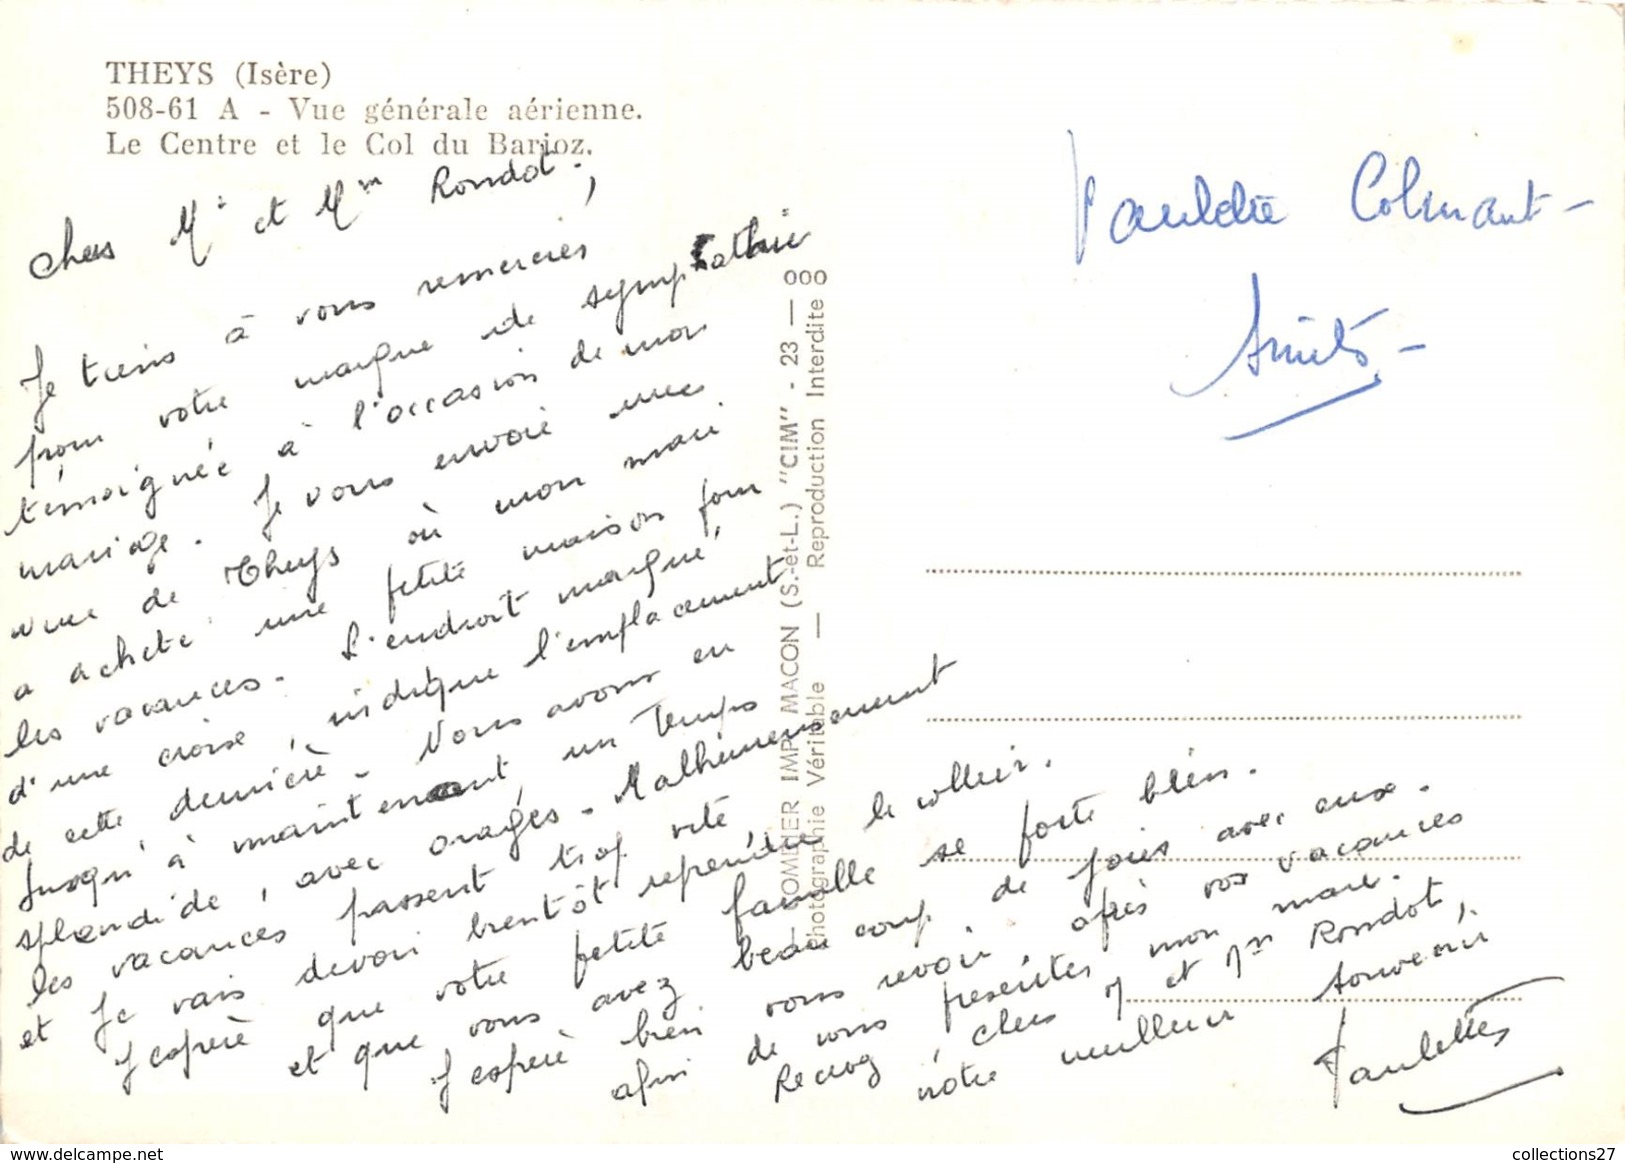 THEYS (Isère)
508-61 A - Vue générale aérienne.
Le Centre et le Col du Barioz.
chers Mr et Mme Rondot,
Je tiens à vous remercier
pour votre marque de sympathie
témoignée à l'occasion de mon
mariage. Je vous envoie une
vue de Theys où mon mari
a acheté une petite maison pour
les vacances. L'endroit marqué
d'une croix, indique l'emplacement
de cette dernière. Nous avons eu
jusqu'à maintenant, un temps
splendide, avec orages. Malheureusement
les vacances passent trop vite
et je vais devoir bientôt reprendre le collier.
J'espère que votre petite famille se porte bien.
et que vous avez beaucoup de joies avec eux.
J'espère bien vous revoir après vos vacances
afin de vous présenter mon mari.
Recevez, chers M et Mme Rondot,
notre meilleur souvenir.
Paulette
Colmant -
Amitiés -
COMBIER IMP. MACON (S.-et-L.) "CIM" - 23 — 000
Photographie Véritable — Reproduction Interdite
collections27